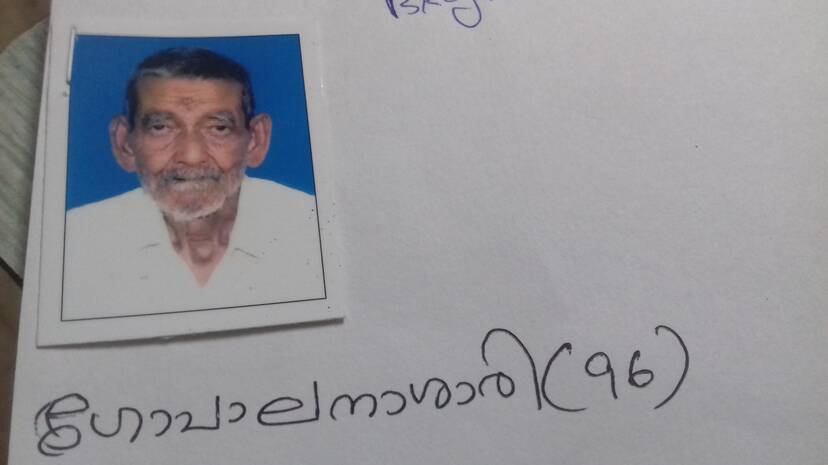 ഗോപാലനാശാരി (96)